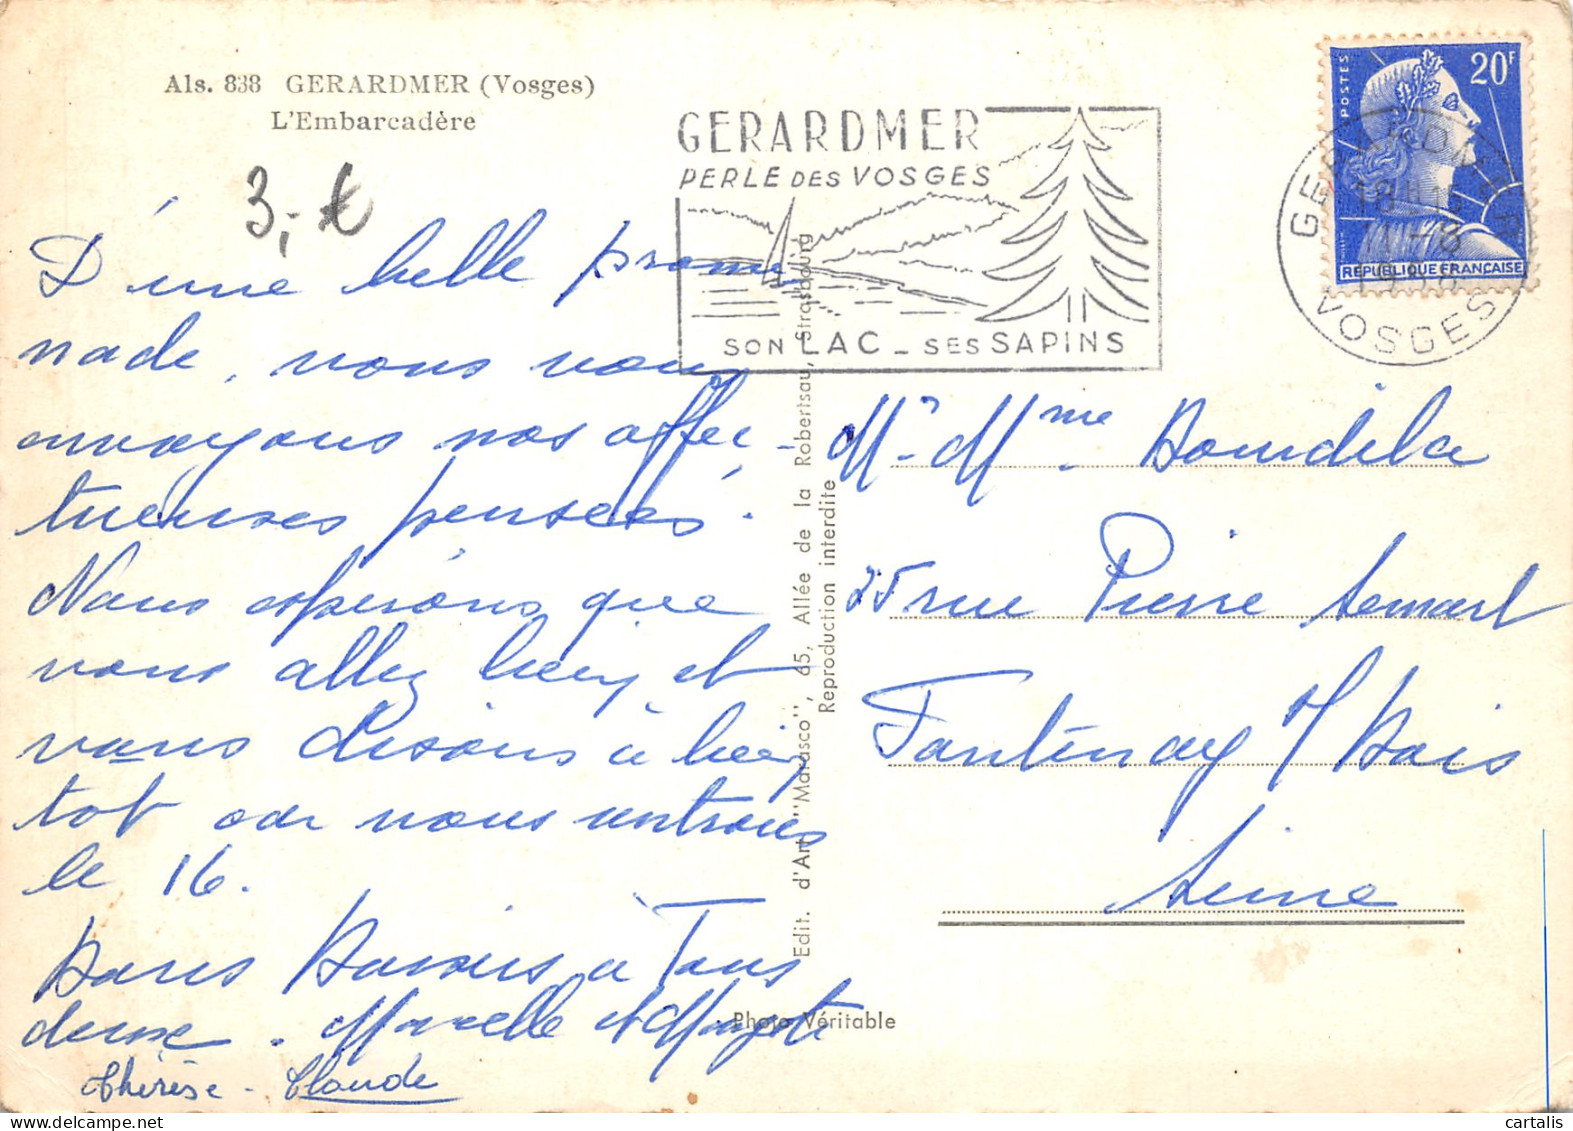 Als. 838 GERARDMER (Vosges)
L'Embarcadère
3,- €
GERARDMER
PERLE DES VOSGES
SON LAC _ SES SAPINS
POSTES
20F
REPUBLIQUE FRANÇAISE
GERARDMER
VOSGES
D'une belle prome
nade, nous vous
envoyons nos affec-
tueuses pensées.
Nous espérons que
vous allez bien et
vous disons à bien
tot car nous rentrons
le 16.
Bons Baisers à Tous
deux. Marcelle et
Thérèse - Claude
Edit. d'Art "Marasco", 65, Allée de la Robertsau, Strasbourg
Reproduction interdite
Photo Véritable
Mr. Mme
25 rue Pierre Semard
Fontenay s/ Bois
Seine
cartalis